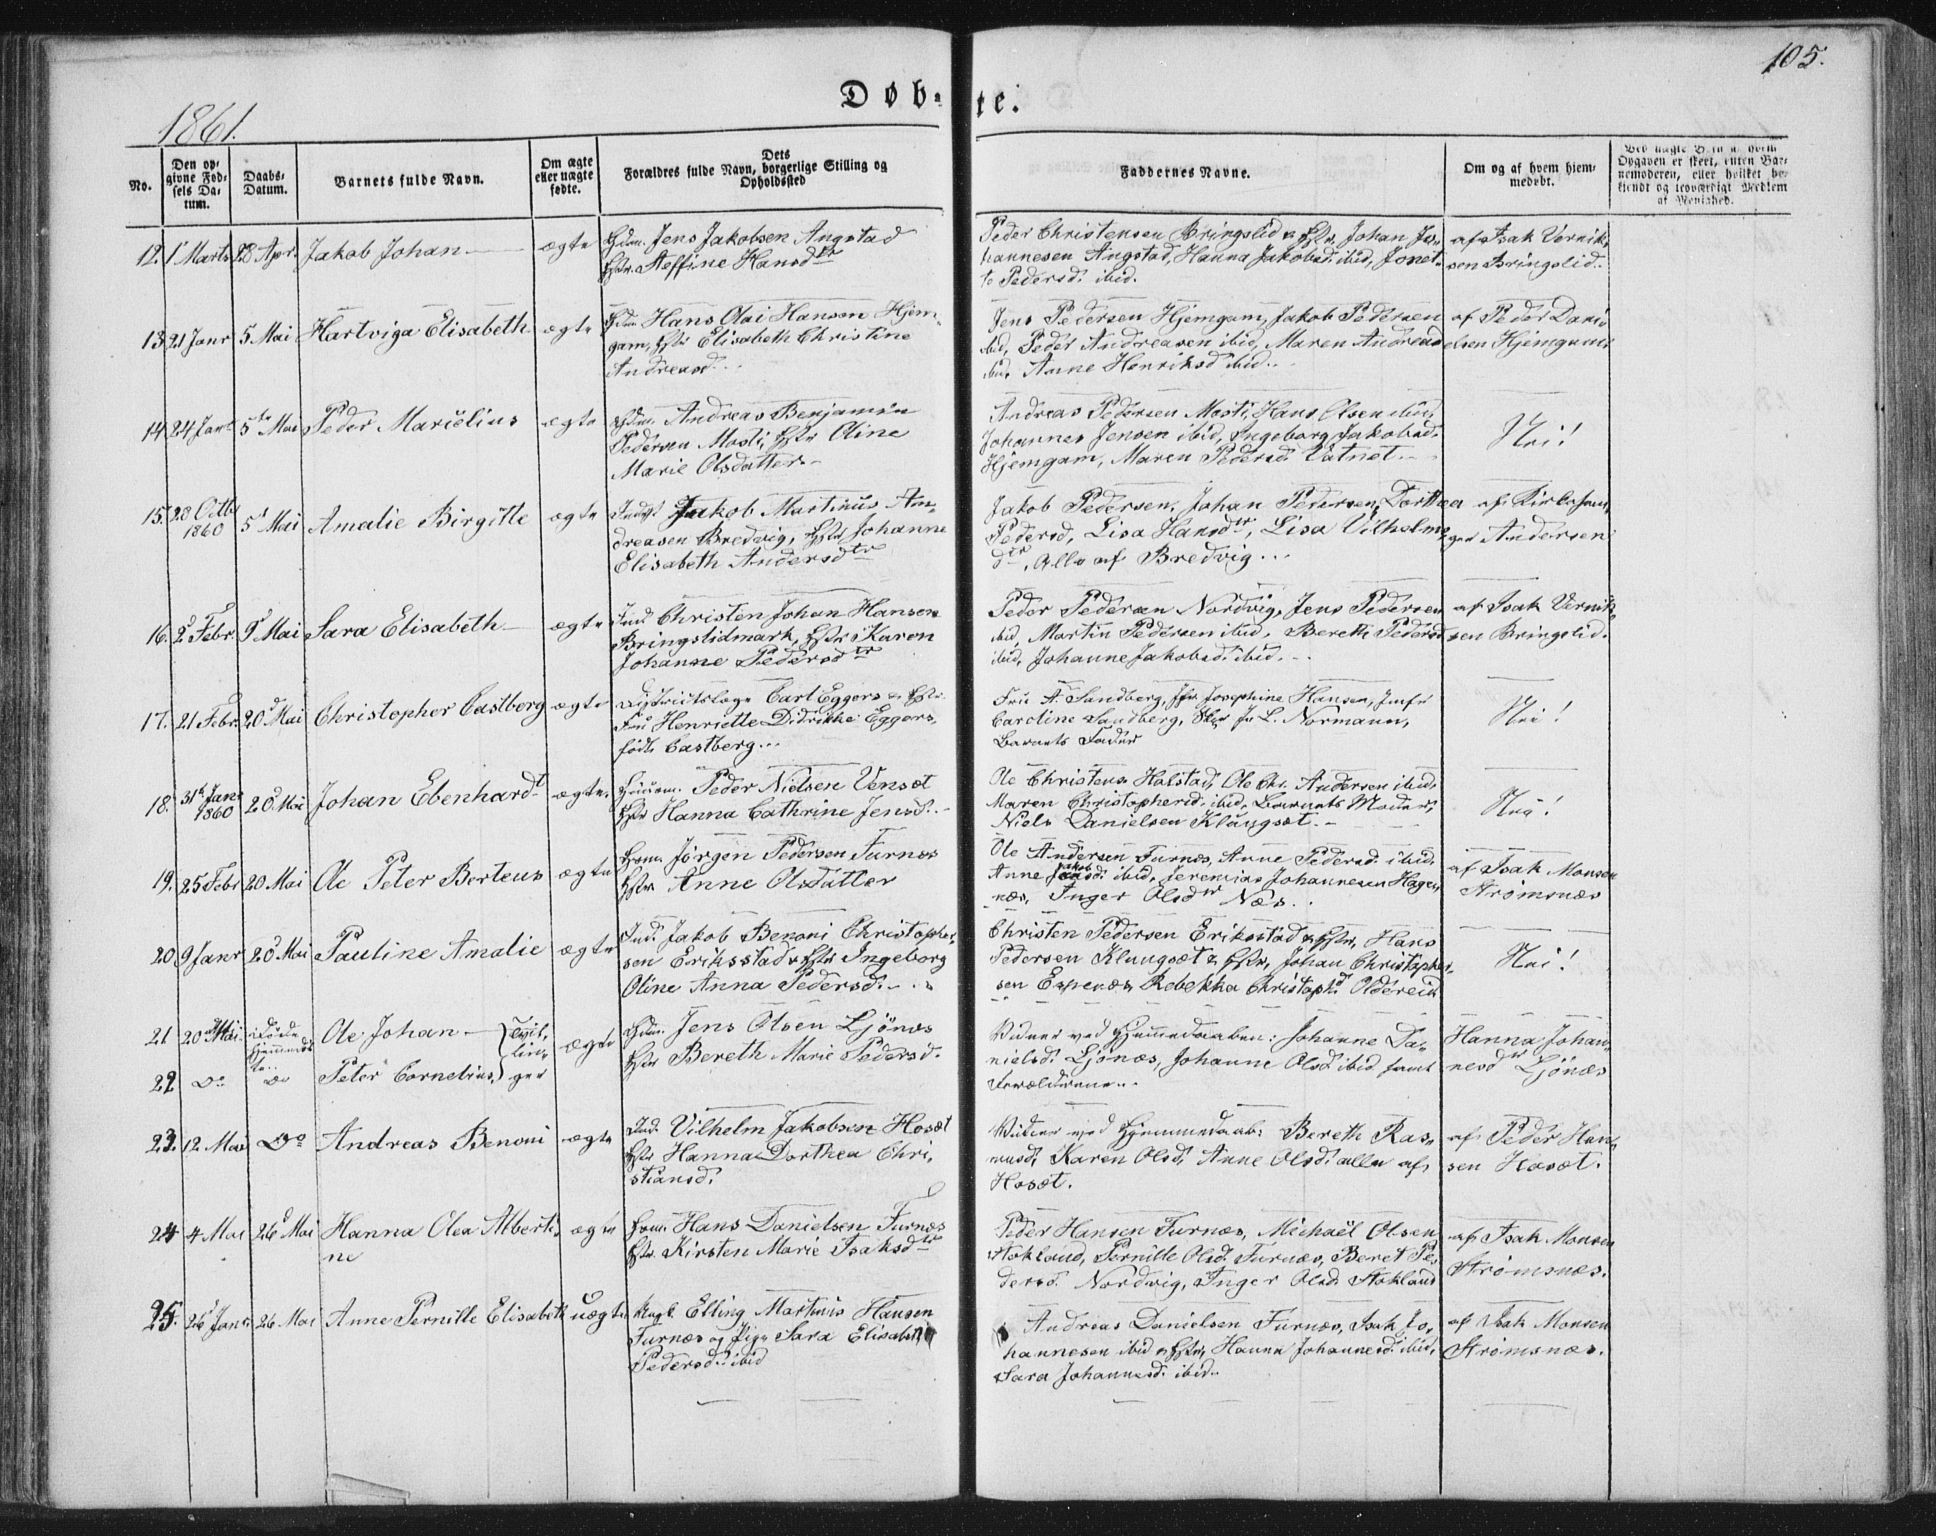 105.
Døb-te.
1861.
No.
Den op-
givne Fød-
sels Da-
tum.
Daabs-
Datum.
Barnets fulde Navn.
Om ægte
eller uægte
fødte.
Dets
Forældres fulde Navn, borgerlige Stilling og
Opholdssted
Faddernes Navne.
Om og af hvem hjem-
medøbt.
Ved uægte Børn af hvem
Opgaven er skeet, enten Bar-
nemoderen, eller hvilket be-
kjendt og troværdigt Medlem
af Menighed.
12. 1 Marts 28 Apr. Jakob Johan ægte
Gdm. Jens Jakobsen Angstad
Hstr. Steffine Hansdtr
Peder Christensen Bringslid & Hstr. Johan Jo-
hannesen Angstad, Hanna Jakobsd. ibid, Jonet-
te Pedersd. ibid.
af Isak Vernik-
sen Bringslid.
13. 21 Janr 5 Mai Hartviga Elisabeth ægte
Gdm Hans Olai Hansen Hjem-
gam, Hstr Elisabeth Christine
Andreasd..
Jens Pedersen Hjemgam, Jakob Pedersen
ibid, Peder Andreasen ibid, Maren Andreasd
ibid. Anne Henriksd ibid..
af Peder Dani-
elsen Hjemgam
14. 24 Janr 5te Mai Peder Marielius ægte
Gdm. Andreas Benjamin
Pedersen Mosti, Hstr Oline
Marie Olsdatter
Andreas Pedersen Mosti, Hans Olsen ibid,
Johannes Jensen ibid, Ingeborg Jakobsd.
Hjemgam, Maren Pedersd. Vatnet.
Nei!
15. 28 Octbr
1860 5 Mai Amalie Birgitte ægte
Inds Jakob Martinus An-
dreasen Bredvig, Hstr Johanne
Elisabeth Andersdtr
Jakob Pedersen, Johan Pedersen, Dorthea
Pedersd, Lisa Hansdtr, Lisa Vilhelms-
dtr, Alle af Bredvig...
af Kirkesan-
ger Andersen
16. 2 Febr. 9 Mai Sara Elisabeth ægte
Ind. Christen Johan Hansen
Bringslidmark, Hstr Karen
Johanne Pedersdtr
Peder Pedersen Nordvig, Jens Pedersen
ibid, Martin Pedersen ibid, Bereth Pedersd
ibid, Johanne Jakobsd. ibid.
af Isak Vernik-
sen Bringslid.
17. 21 Febr. 20 Mai Christopher Castberg ægte
Districtslæge Carl Eggers & Hstr
Fru Henriette Didrikke Eggers,
født Castberg...
Fru A. Sandberg, Jfr Josephine Hansen, Jmfr
Caroline Sandberg, Hr J. L. Normann,
Barnets Fader
Nei!
18. 31 Janr
1860 20 Mai Johan Ebenhardt ægte.
Huusm. Peder Nielsen Venset
Hstr Hanna Cathrine Jensd.
Ole Christens Halstad, Ole Chr. Andersen ibid,
Maren Christophersd. ibid, Barnets Moder,
Niels Danielsen Klungset.
Nei!
19. 25 Febr 20 Mai Ole Peter Berteus ægte
Huusm. Jørgen Pedersen Furnes
Hstr Anne Olsdatter
Ole Andersen Furnæs, Anne Pedersd. ibid,
Anne Jakobsd. ibid, Jeremias Johannesen Hagen-
næs, Inger Olsdtr Næs.
af Isak Monsen
Strømsnæs
20 9 Janr 20 Mai Pauline Amalie ægte
Ind. Jakob Benoni Christopher-
sen Eriksstad & Hstr Ingeborg
Oline Anna Pedersd.
Christen Pedersen Eriksstad & Hstr, Hans
Pedersen Klungset & Hstr, Johan Christopher-
sen Espenæs, Rebekka Christophd Oldereid
Nei!
21 20 Mai Døde
hjemmedøb-
te.. Ole Johan Tvil-
lin-
ger ægte
22 Do Do Peter Cornelius
Gdm. Jens Olsen Ljönæs
Hstr Bereth Marie Pedersd.
Vidner ved Hjemmedaaben: Johanne Da-
nielsd. Ljönæs, Johanne Olsd ibid samt
Forældrene..
Hanna Johan-
nesd Ljönæs
23. 12. Mai Do Andreas Benoni ægte
Ind. Vilhelm Jakobsen Hoset
Hstr Hanna Dorthea Chri-
stiansd.
Vidner ved Hjemmedaab: Bereth Ras-
musd. Karen Olsd, Anne Olsd. alle af
Hoset.
af Peder Han-
sen Hoset.
24 4 Mai 26 Mai Hanna Olea Alberti-
ne ægte
Huusm. Hans Danielsen Furnæs
Hstr. Kirsten Marie Isaksdtr
Peder Hansen Furnæs, Michaël Olsen
Stokland, Pernille Olsd. Furnæs, Beret Pe-
dersd. Nordvig, Inger Olsd. Stokland
af Isak Monsen
Strømsnæs.
25. 26 Janr. 26 Mai Anne Pernille Elisabeth uægte
Ungk. Elling Martinus Hansen
Furnæs og Pige Sara Elisabeth
Pedersd. ibid
Andreas Danielsen Furnæs, Isak Jo-
hannesen ibid & Hstr, Hanna Johannesd. ibid,
Sara Johannesd. ibid.
af Isak Monsen
Strømsnæs.